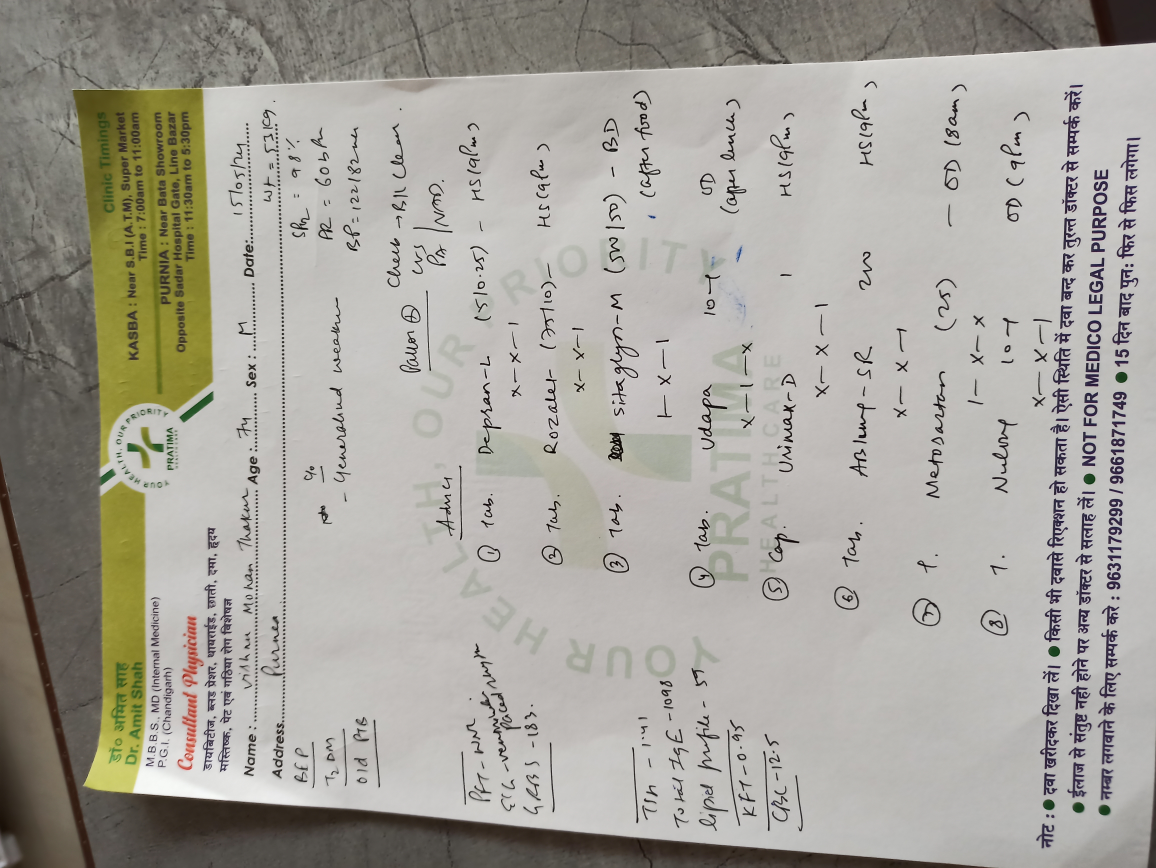 डॉ० अमित साह
Dr. Amit Shah
M.B.B.S., MD (Internal Medicine)
P.G.I. (Chandigarh)
Consultant Physician
डायबिटीज, ब्लड प्रेशर, थायराईड, छाती, दमा, हृदय
मस्तिष्क, पेट एवं गठिया रोग विशेषज्ञ
YOUR HEALTH, OUR PRIORITY
PRATIMA
Clinic Timings
KASBA : Near S.B.I (A.T.M), Super Market
Time : 7:00am to 11:00am
PURNIA : Near Bata Showroom
Opposite Sadar Hospital Gate, Line Bazar
Time : 11:30am to 5:30pm
Name : Vishnu Mohan Thakur Age : 74 Sex : M Date: 15/05/24
Address Purnea
Wt = 53kg.
BEP
T2 DM
Old PTB
c/o
- Generalised
SPO2 = 98%
PR = 60 bpm
BP = 122/82 mm
Pallor
Chest → B/L Clear.
CVS
PA / NAD.
PFT - WNR
ECG - Paced rhythm
GRBS - 183.
TSH - 1.41
Total IgE - 1098
lipid profile - 59
KFT - 0.95
CBC - 12.5
Advice
① Tab. Depran-L (5/0.25) - HS (9Pm)
x-x-1
② Tab. Rozalet (75/10) - HS (9Pm)
x-x-1
③ Tab. Sitaglyn-M (500/50) - BD
1-x-1 (after food)
④ Tab. Udapa 10-1 OD
x-1-x (after lunch)
⑤ Cap. Urimax-D 1 HS (9Pm)
x-x-1
⑥ Tab. SR 200 HS (9Pm)
x-x-1
⑦ T. Metosartan (25) - OD (8am)
1-x-x
⑧ T. Nulong 10-1 OD (9Pm)
x-x-1
YOUR HEALTH, OUR PRIORITY
PRATIMA
HEALTHCARE
नोट : ● दवा खरीदकर दिखा लें। ● किसी भी दवासे रिएक्शन हो सकता है। ऐसी स्थिति में दवा बन्द कर तुरन्त डॉक्टर से सम्पर्क करें।
● ईलाज से संतुष्ट नही होने पर अन्य डॉक्टर से सलाह लें। ● NOT FOR MEDICO LEGAL PURPOSE
● नम्बर लगवाने के लिए सम्पर्क करे : 9631179299 / 9661871749 ● 15 दिन बाद पुन: फिर से फिस लगेगा।